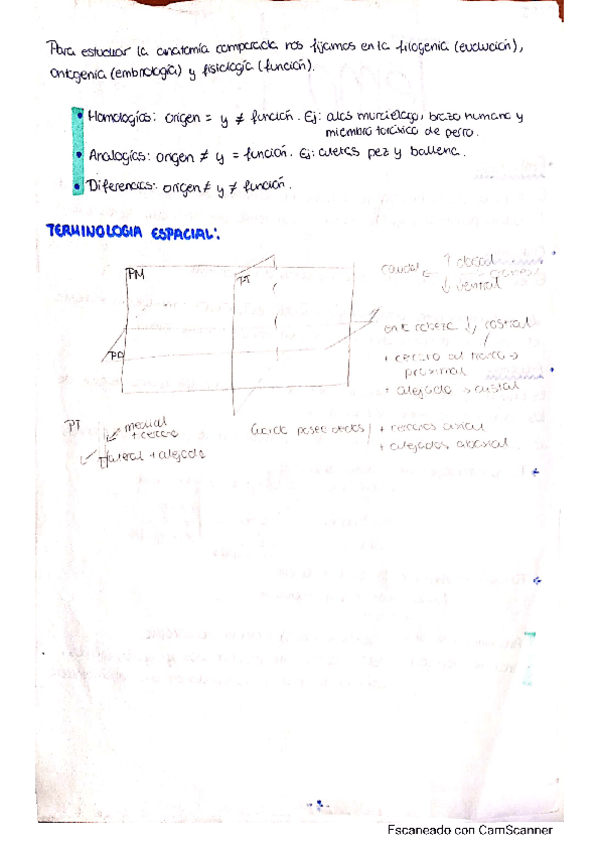 Para estudiar la anatomía comparada nos fijamos en la filogenia (evolución),
ontogenia (embriología) y fisiología (función).
• Homologías: origen = y ≠ función. Ej: alas murciélago, brazo humano y
miembro torácico de perro.
• Analogías: origen ≠ y = función. Ej: aletas pez y ballena.
• Diferencias: origen ≠ y ≠ función.
TERMINOLOGIA ESPACIAL:
PM
PT
PD
caudal
↑ dorsal
↓ ventral
rostral
+ cerca al tronco →
proximal
+ alejado → distal
PT
medial
+ cerca
lateral + alejado
posee dedos / + cercos axial
+ alejados abaxial
Escaneado con CamScanner